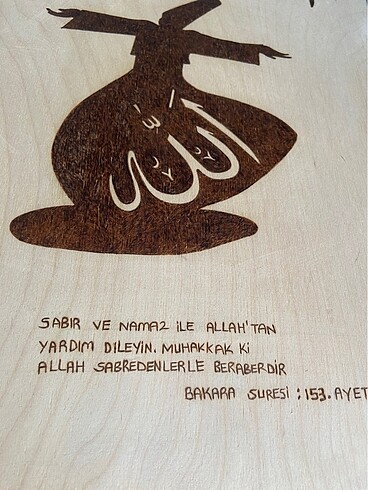 الله
SABIR VE NAMAZ İLE ALLAH'TAN
YARDIM DİLEYİN. MUHAKKAK Kİ
ALLAH SABREDENLERLE BERABERDİR
BAKARA SURESİ : 153. AYET